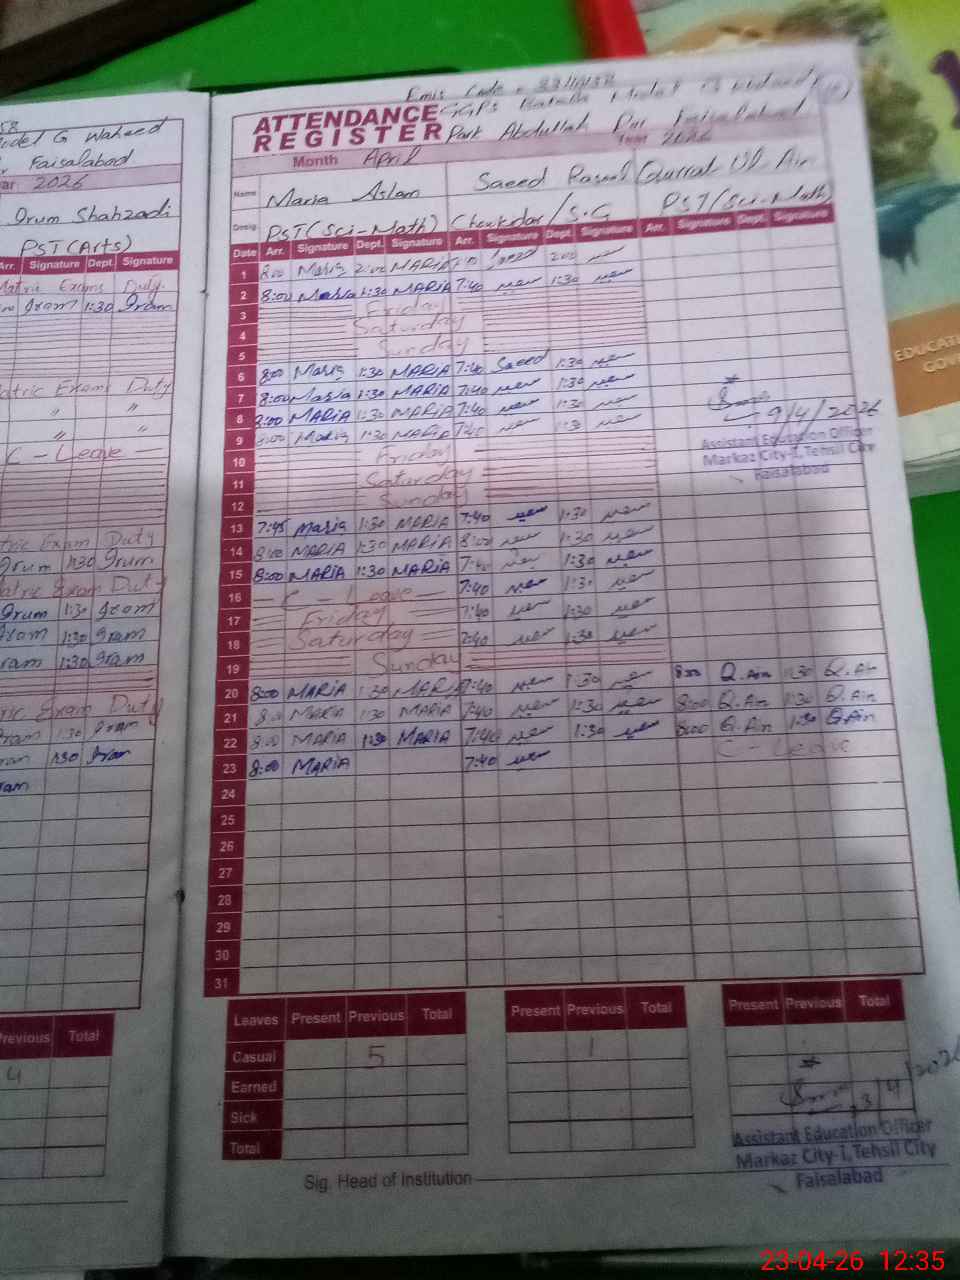 Model G Waheed
Faisalabad
2026
Irum Shahzadi
PST (Arts)
Arr. Signature Dept. Signature
Matric Exams Duty
Iram 1:30 Iram
Matric Exam Duty
〃 〃
〃 〃
C - Leave
Matric Exam Duty
Irum 1:30 Irum
Matric Exam Duty
Irum 1:30 Iram
Iram 1:30 Iram
Iram 1:30 Iram
Exam Duty
Iram 1:30 Iram
1:30 Iram
Previous Total
4
Emis Code
ATTENDANCE GGPS Model G Waheed
REGISTER Park Abdullah Pur Faisalabad
Month April Year 2026
Name Maria Aslam Saeed Rasool Qurrat Ul Ain
Desig. PST (Sci-Math) Chowkdar / S.G PST (Sci-Math)
Date Arr. Signature Dept. Signature Arr. Signature Dept. Signature Arr. Signature Dept. Signature
1 8:00 Maria 2:00 MARIA Saeed 2:00 سعید
2 8:00 Maria 1:30 MARIA 7:40 سعید 1:30 سعید
3 Friday
4 Saturday
5 Sunday
6 8:00 Maria 1:30 MARIA 7:40 Saeed 1:30 سعید
7 8:00 Maria 1:30 MARIA 7:40 سعید 1:30 سعید
8 8:00 MARIA 1:30 MARIA 7:40 سعید 1:30 سعید
9 8:00 Maria 1:30 MARIA 7:40 سعید 1:30 سعید
9/4/2026
Assistant Education Officer
Markaz City-I, Tehsil City
Faisalabad
10 Friday
11 Saturday
12 Sunday
13 7:45 Maria 1:30 MARIA 7:40 سعید 1:30 سعید
14 8:00 MARIA 1:30 MARIA 8:00 سعید 1:30 سعید
15 8:00 MARIA 1:30 MARIA 7:40 سعید 1:30 سعید
16 C - Leave 7:40 سعید 1:30 سعید
17 Friday 7:40 سعید 1:30 سعید
18 Saturday 7:40 سعید 1:30 سعید
19 Sunday
20 8:00 MARIA 1:30 MARIA 7:40 سعید 1:30 سعید 8:00 Q.Ain 1:30 Q.Ain
21 8:00 MARIA 1:30 MARIA 7:40 سعید 1:30 سعید 8:00 Q.Ain 1:30 Q.Ain
22 8:00 MARIA 1:30 MARIA 7:40 سعید 1:30 سعید 8:00 Q.Ain 1:30 Q.Ain
23 8:00 MARIA 7:40 سعید C - Leave
24
25
26
27
28
29
30
31
Leaves Present Previous Total Present Previous Total Present Previous Total
Casual 5 1
Earned
Sick
Total
Assistant Education Officer
Markaz City-I, Tehsil City
Faisalabad
Sig. Head of Institution
EDUCATI
GOV
23-04-26 12:35